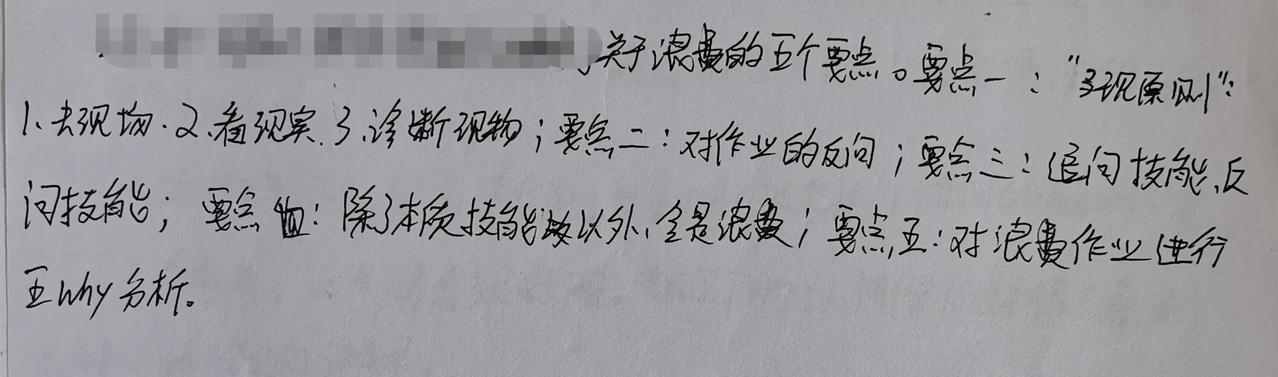 关于浪费的五个要点。要点一："3现原则"：
1、去现场.2.看现实.3.诊断现物；要点二：对作业的反问；要点三：追问技能、反
问技能；要点四：除了本质技能以外，全是浪费；要点五：对浪费作业进行
五why分析。